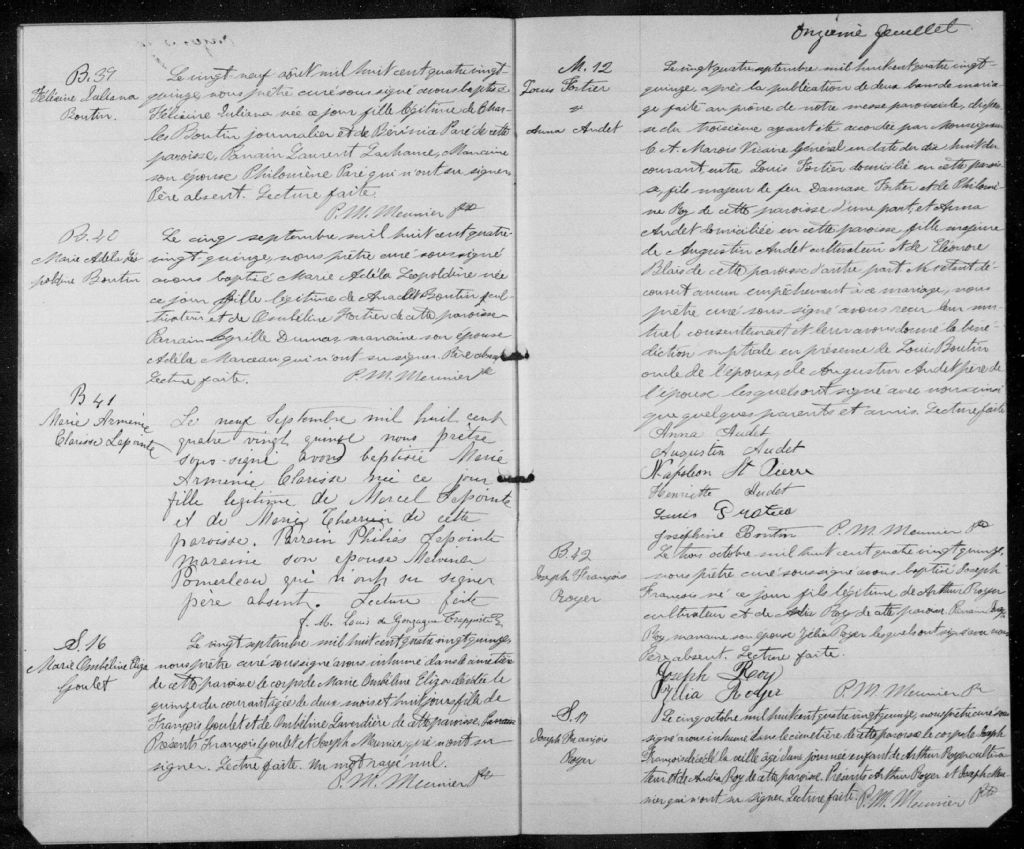 B. 39
Félixine Juliana
Boutin.
Le vingt neuf août mil huit cent quatre vingt-
quinze, nous prêtre curé soussigné avons baptisé
Juliana née ce jour fille légitime de Char-
les Boutin journalier et de Paré de cette
paroisse, Parrain Laurent Lachance, Marraine
son épouse Philomène Paré qui n'ont su signer
Père absent. Lecture faite.
P. M. Meunier Ptre
B. 40
Marie Adéla Léo-
poldine Boutin
Le cinq septembre mil huit cent quatre
vingt-quinze, nous prêtre curé soussigné
avons baptisé Marie Adéla Léopoldine née
ce jour fille légitime de Boutin cul-
tivateur et de Ombéline Fortier de cette paroisse
Parrain Cyrille Dumas, marraine son épouse
Adéla Marceau qui n'ont su signer. Père absent
Lecture faite. P. M. Meunier Ptre
B 41
Marie Arménie
Clarisse Lapointe
Le neuf Septembre mil huit cent
quatre vingt quinze nous prêtre
sous-signé avons baptisé Marie
Arménie Clarisse née ce jour
fille legitime de Marcel Lapointe
et de Marie Therrien de cette
paroisse. Parrain Philias Lapointe
maraine son epouse Malvina
Pomerleau qui n'onh su signer
père absent. Lecture faite
f. M. Louis de Gonzague Trappiste
S. 16
Marie Ombéline Eliza
Goulet
Le vingt septembre mil huit cent quatre vingt quinze,
nous prêtre curé soussigné avons inhumé dans le cimetière
de cette paroisse le corps de Marie Ombéline Eliza décédée le
quinze du courant agée de deux mois et huit jours fille de
François Goulet et de Ombéline Laverdière de cette paroisse,
Présents François Goulet et Joseph Meunier, qui n'ont su
signer. Lecture faite. Un mot rayé nul.
P. M. Meunier Ptre
Onzième feuillet
M. 12
Louis Fortier
&
Anna Audet
Le vingt quatre septembre mil huit cent quatre vingt-
quinze, après la publication de deux bans de maria-
ge faite au prône de notre messe paroissiale, dispen-
se du troisième ayant été accordée par Monseigneur
C. A. Marois Vicaire Général en date du dix huit du
courant entre Louis Fortier domicilié en cette parois-
se, fils majeur de feu Damase Fortier et de Philomè-
ne Roy de cette paroisse d'une part, et Anna
Audet domiciliée en cette paroisse, fille majeure
de Augustin Audet cultivateur et de Eléonore
Blais de cette paroisse d'autre part. Ne s'étant dé-
couvert aucun empêchement à ce mariage, nous
prêtre curé soussigné avons reçu leur mu-
tuel consentement et leur avons donné la béné-
diction nuptiale en présence de Louis Boutin
oncle de l'époux, de Augustin Audet père de
l'épouse lesquels ont signé avec nous ainsi
que quelques parents et amis. Lecture faite
Anna Audet
Augustin Audet
Napoléon St Pierre
Henriette Audet
Louis
Joséphine Boutin P. M. Meunier Ptre
B. 42
Joseph François
Royer
Le trois octobre mil huit cent quatre vingt quinze,
nous prêtre curé soussigné avons baptisé Joseph
François né ce jour fils légitime de Arthur Royer
cultivateur et de Roy de cette paroisse. Parrain
Roy, marraine son épouse Zélia Royer lesquels ont signé avec nous
Père absent. Lecture faite.
Joseph Roy
Zélia Royer P. M. Meunier Ptre
S. 17
Joseph François
Royer
Le cinq octobre mil huit cent quatre vingt quinze, nous prêtre curé sous-
signé avons inhumé dans le cimetière de cette paroisse le corps de Joseph
François décédé la veille âgé d'une journée enfant de Arthur Royer cultiva-
teur et de Roy de cette paroisse. Présents Arthur Royer et Joseph Meu-
nier qui n'ont su signer. Lecture faite. P. M. Meunier Ptre